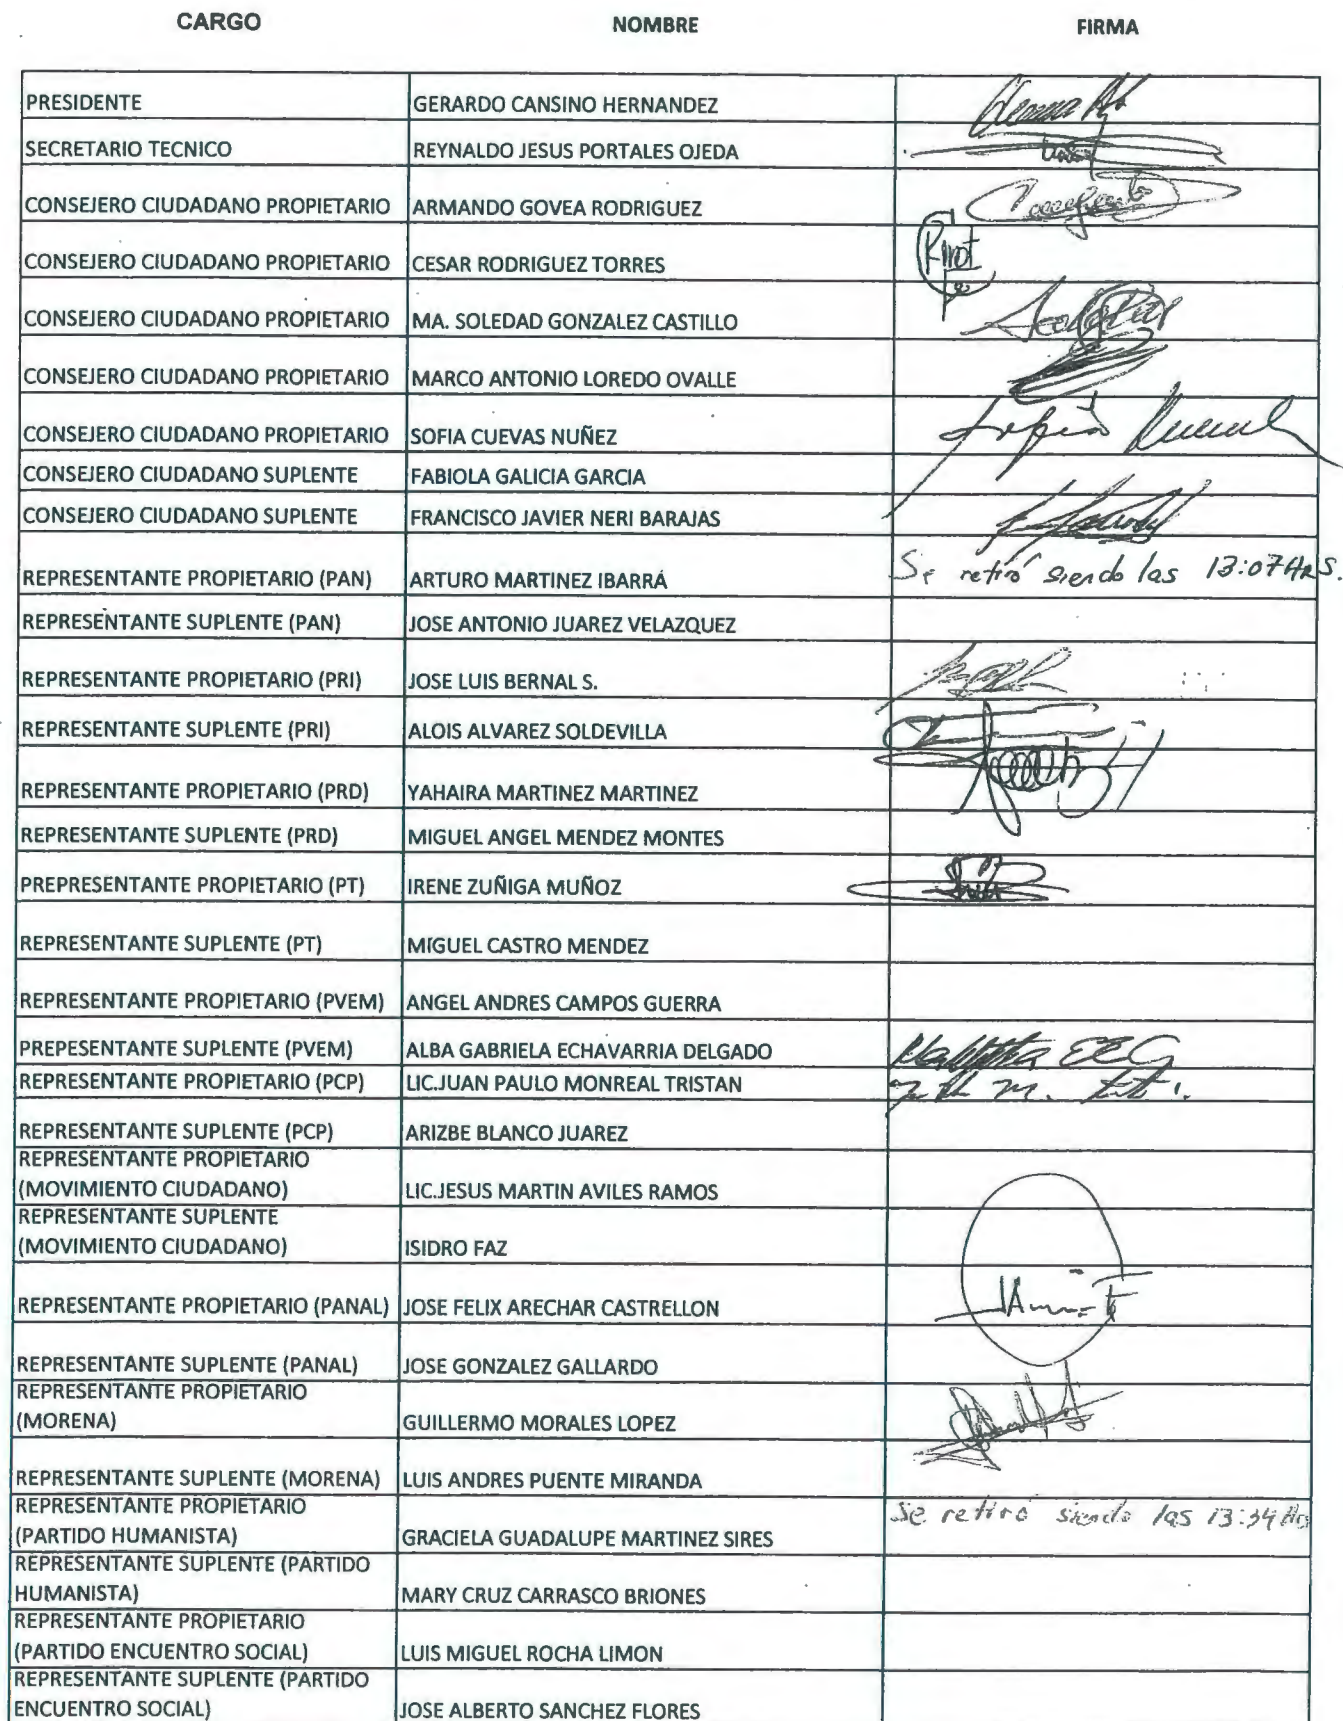 CARGO NOMBRE FIRMA
PRESIDENTE GERARDO CANSINO HERNANDEZ
SECRETARIO TECNICO REYNALDO JESUS PORTALES OJEDA
CONSEJERO CIUDADANO PROPIETARIO ARMANDO GOVEA RODRIGUEZ
CONSEJERO CIUDADANO PROPIETARIO CESAR RODRIGUEZ TORRES
CONSEJERO CIUDADANO PROPIETARIO MA. SOLEDAD GONZALEZ CASTILLO
CONSEJERO CIUDADANO PROPIETARIO MARCO ANTONIO LOREDO OVALLE
CONSEJERO CIUDADANO PROPIETARIO SOFIA CUEVAS NUÑEZ
CONSEJERO CIUDADANO SUPLENTE FABIOLA GALICIA GARCIA
CONSEJERO CIUDADANO SUPLENTE FRANCISCO JAVIER NERI BARAJAS
REPRESENTANTE PROPIETARIO (PAN) ARTURO MARTINEZ IBARRÁ Se retiró siendo las 13:07 HRS.
REPRESENTANTE SUPLENTE (PAN) JOSE ANTONIO JUAREZ VELAZQUEZ
REPRESENTANTE PROPIETARIO (PRI) JOSE LUIS BERNAL S.
REPRESENTANTE SUPLENTE (PRI) ALOIS ALVAREZ SOLDEVILLA
REPRESENTANTE PROPIETARIO (PRD) YAHAIRA MARTINEZ MARTINEZ
REPRESENTANTE SUPLENTE (PRD) MIGUEL ANGEL MENDEZ MONTES
PREPRESENTANTE PROPIETARIO (PT) IRENE ZUÑIGA MUÑOZ
REPRESENTANTE SUPLENTE (PT) MIGUEL CASTRO MENDEZ
REPRESENTANTE PROPIETARIO (PVEM) ANGEL ANDRES CAMPOS GUERRA
PREPESENTANTE SUPLENTE (PVEM) ALBA GABRIELA ECHAVARRIA DELGADO
REPRESENTANTE PROPIETARIO (PCP) LIC.JUAN PAULO MONREAL TRISTAN
REPRESENTANTE SUPLENTE (PCP) ARIZBE BLANCO JUAREZ
REPRESENTANTE PROPIETARIO
(MOVIMIENTO CIUDADANO) LIC.JESUS MARTIN AVILES RAMOS
REPRESENTANTE SUPLENTE
(MOVIMIENTO CIUDADANO) ISIDRO FAZ
REPRESENTANTE PROPIETARIO (PANAL) JOSE FELIX ARECHAR CASTRELLON
REPRESENTANTE SUPLENTE (PANAL) JOSE GONZALEZ GALLARDO
REPRESENTANTE PROPIETARIO
(MORENA) GUILLERMO MORALES LOPEZ
REPRESENTANTE SUPLENTE (MORENA) LUIS ANDRES PUENTE MIRANDA
REPRESENTANTE PROPIETARIO
(PARTIDO HUMANISTA) GRACIELA GUADALUPE MARTINEZ SIRES Se retiró siendo las 13:34
REPRESENTANTE SUPLENTE (PARTIDO
HUMANISTA) MARY CRUZ CARRASCO BRIONES
REPRESENTANTE PROPIETARIO
(PARTIDO ENCUENTRO SOCIAL) LUIS MIGUEL ROCHA LIMON
REPRESENTANTE SUPLENTE (PARTIDO
ENCUENTRO SOCIAL) JOSE ALBERTO SANCHEZ FLORES